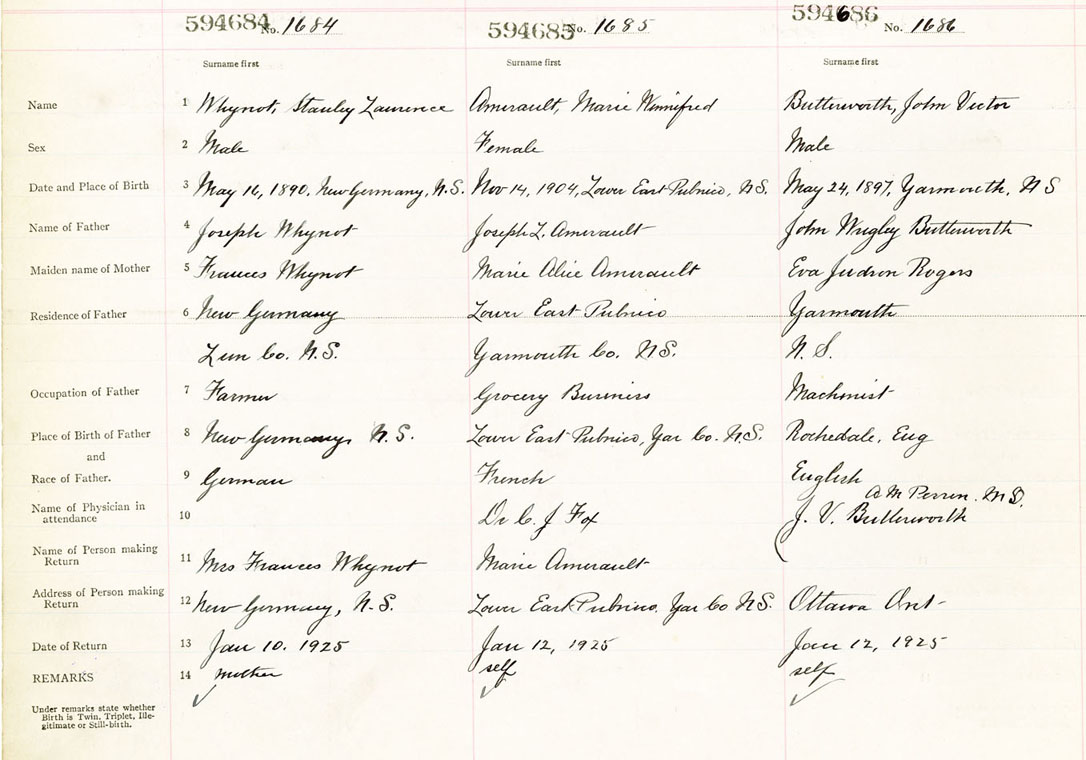 594684 No. 1684 594685 No. 1685 594686 No. 1686
Surname first Surname first Surname first
Name 1 Whynot, Stanley Laurence Amirault, Marie Winnifred Butterworth, John Victor
Sex 2 Male Female Male
Date and Place of Birth 3 May 16, 1890, New Germany, N.S. Nov 14, 1904, Lower East Pubnico, NS. May 24, 1897, Yarmouth, N S
Name of Father 4 Joseph Whynot Joseph L. Amirault John Wrigley Butterworth
Maiden name of Mother 5 Frances Whynot Marie Alice Amirault Eva Judson Rogers
Residence of Father 6 New Germany Lower East Pubnico Yarmouth
Lun Co. N.S. Yarmouth Co. NS. N. S.
Occupation of Father 7 Farmer Grocery Business Machinist
Place of Birth of Father 8 New Germany, N.S. Lower East Pubnico, Yar Co. N.S. Rochedale, Eng
and
Race of Father. 9 German French English
A M Perrin. M D.
Name of Physician in attendance 10 Dr C. J Fox J. V. Butterworth
Name of Person making Return 11 Mrs Frances Whynot Marie Amirault
Address of Person making Return 12 New Germany, N-S. Lower East Pubnico, Yar Co N.S. Ottawa Ont-
Date of Return 13 Jan 10. 1925 Jan 12, 1925 Jan 12, 1925
REMARKS 14 mother self self
Under remarks state whether
Birth is Twin, Triplet, Ille-
gitimate or Still-birth.